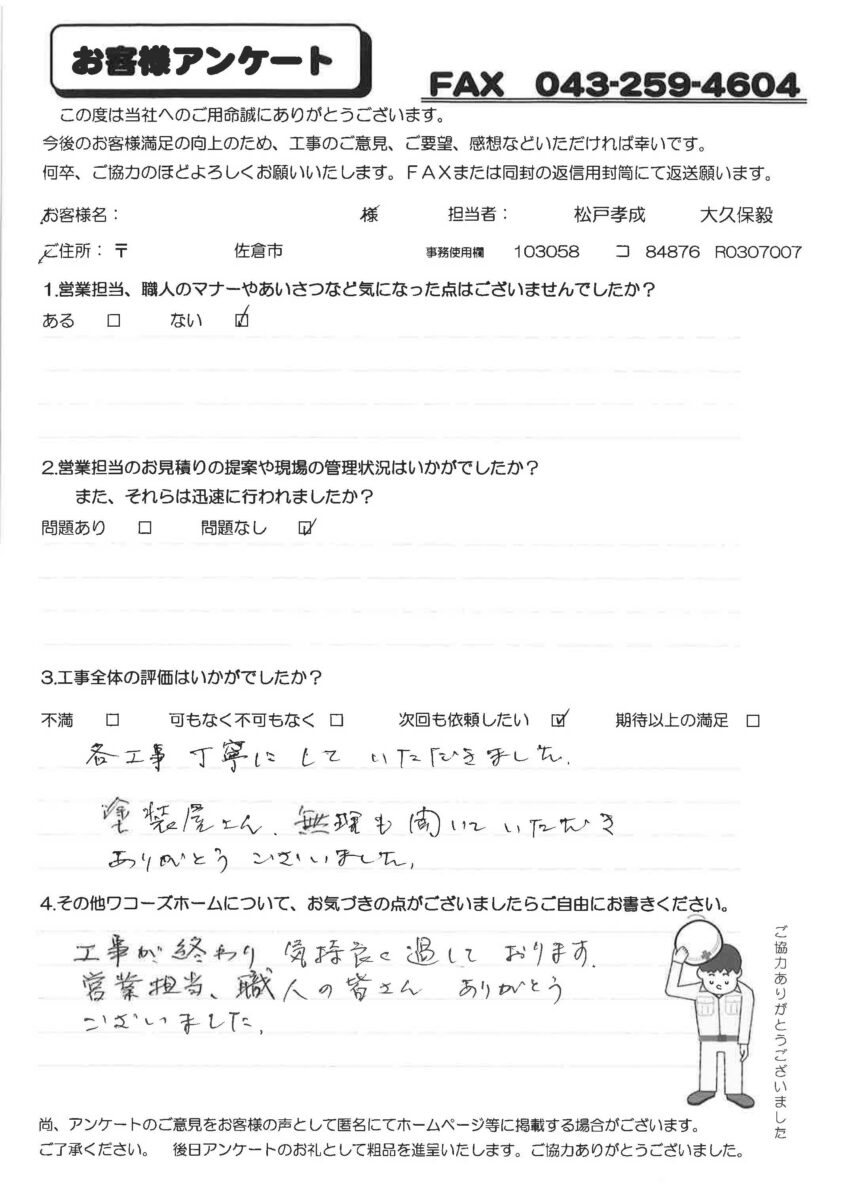 お客様アンケート
FAX 043-259-4604
この度は当社へのご用命誠にありがとうございます。
今後のお客様満足の向上のため、工事のご意見、ご要望、感想などいただければ幸いです。
何卒、ご協力のほどよろしくお願いいたします。FAXまたは同封の返信用封筒にて返送願います。
お客様名： 様 担当者： 松戸孝成 大久保毅
ご住所：〒 佐倉市 事務使用欄 103058 コ 84876 R0307007
1.営業担当、職人のマナーやあいさつなど気になった点はございませんでしたか？
ある □ ない ☑
2.営業担当のお見積りの提案や現場の管理状況はいかがでしたか？
また、それらは迅速に行われましたか？
問題あり □ 問題なし ☑
3.工事全体の評価はいかがでしたか？
不満 □ 可もなく不可もなく □ 次回も依頼したい ☑ 期待以上の満足 □
各工事 丁寧に して いただきました.
塗装屋さん、無理も聞いて いただき
ありがとう ございました.
4.その他ワコーズホームについて、お気づきの点がございましたらご自由にお書きください。
工事が終わり 気持良く過して おります.
営業担当、職人の皆さん ありがとう
ございました.
ご協力ありがとうございました
尚、アンケートのご意見をお客様の声として匿名にてホームページ等に掲載する場合がございます。
ご了承ください。 後日アンケートのお礼として粗品を進呈いたします。ご協力ありがとうございました。